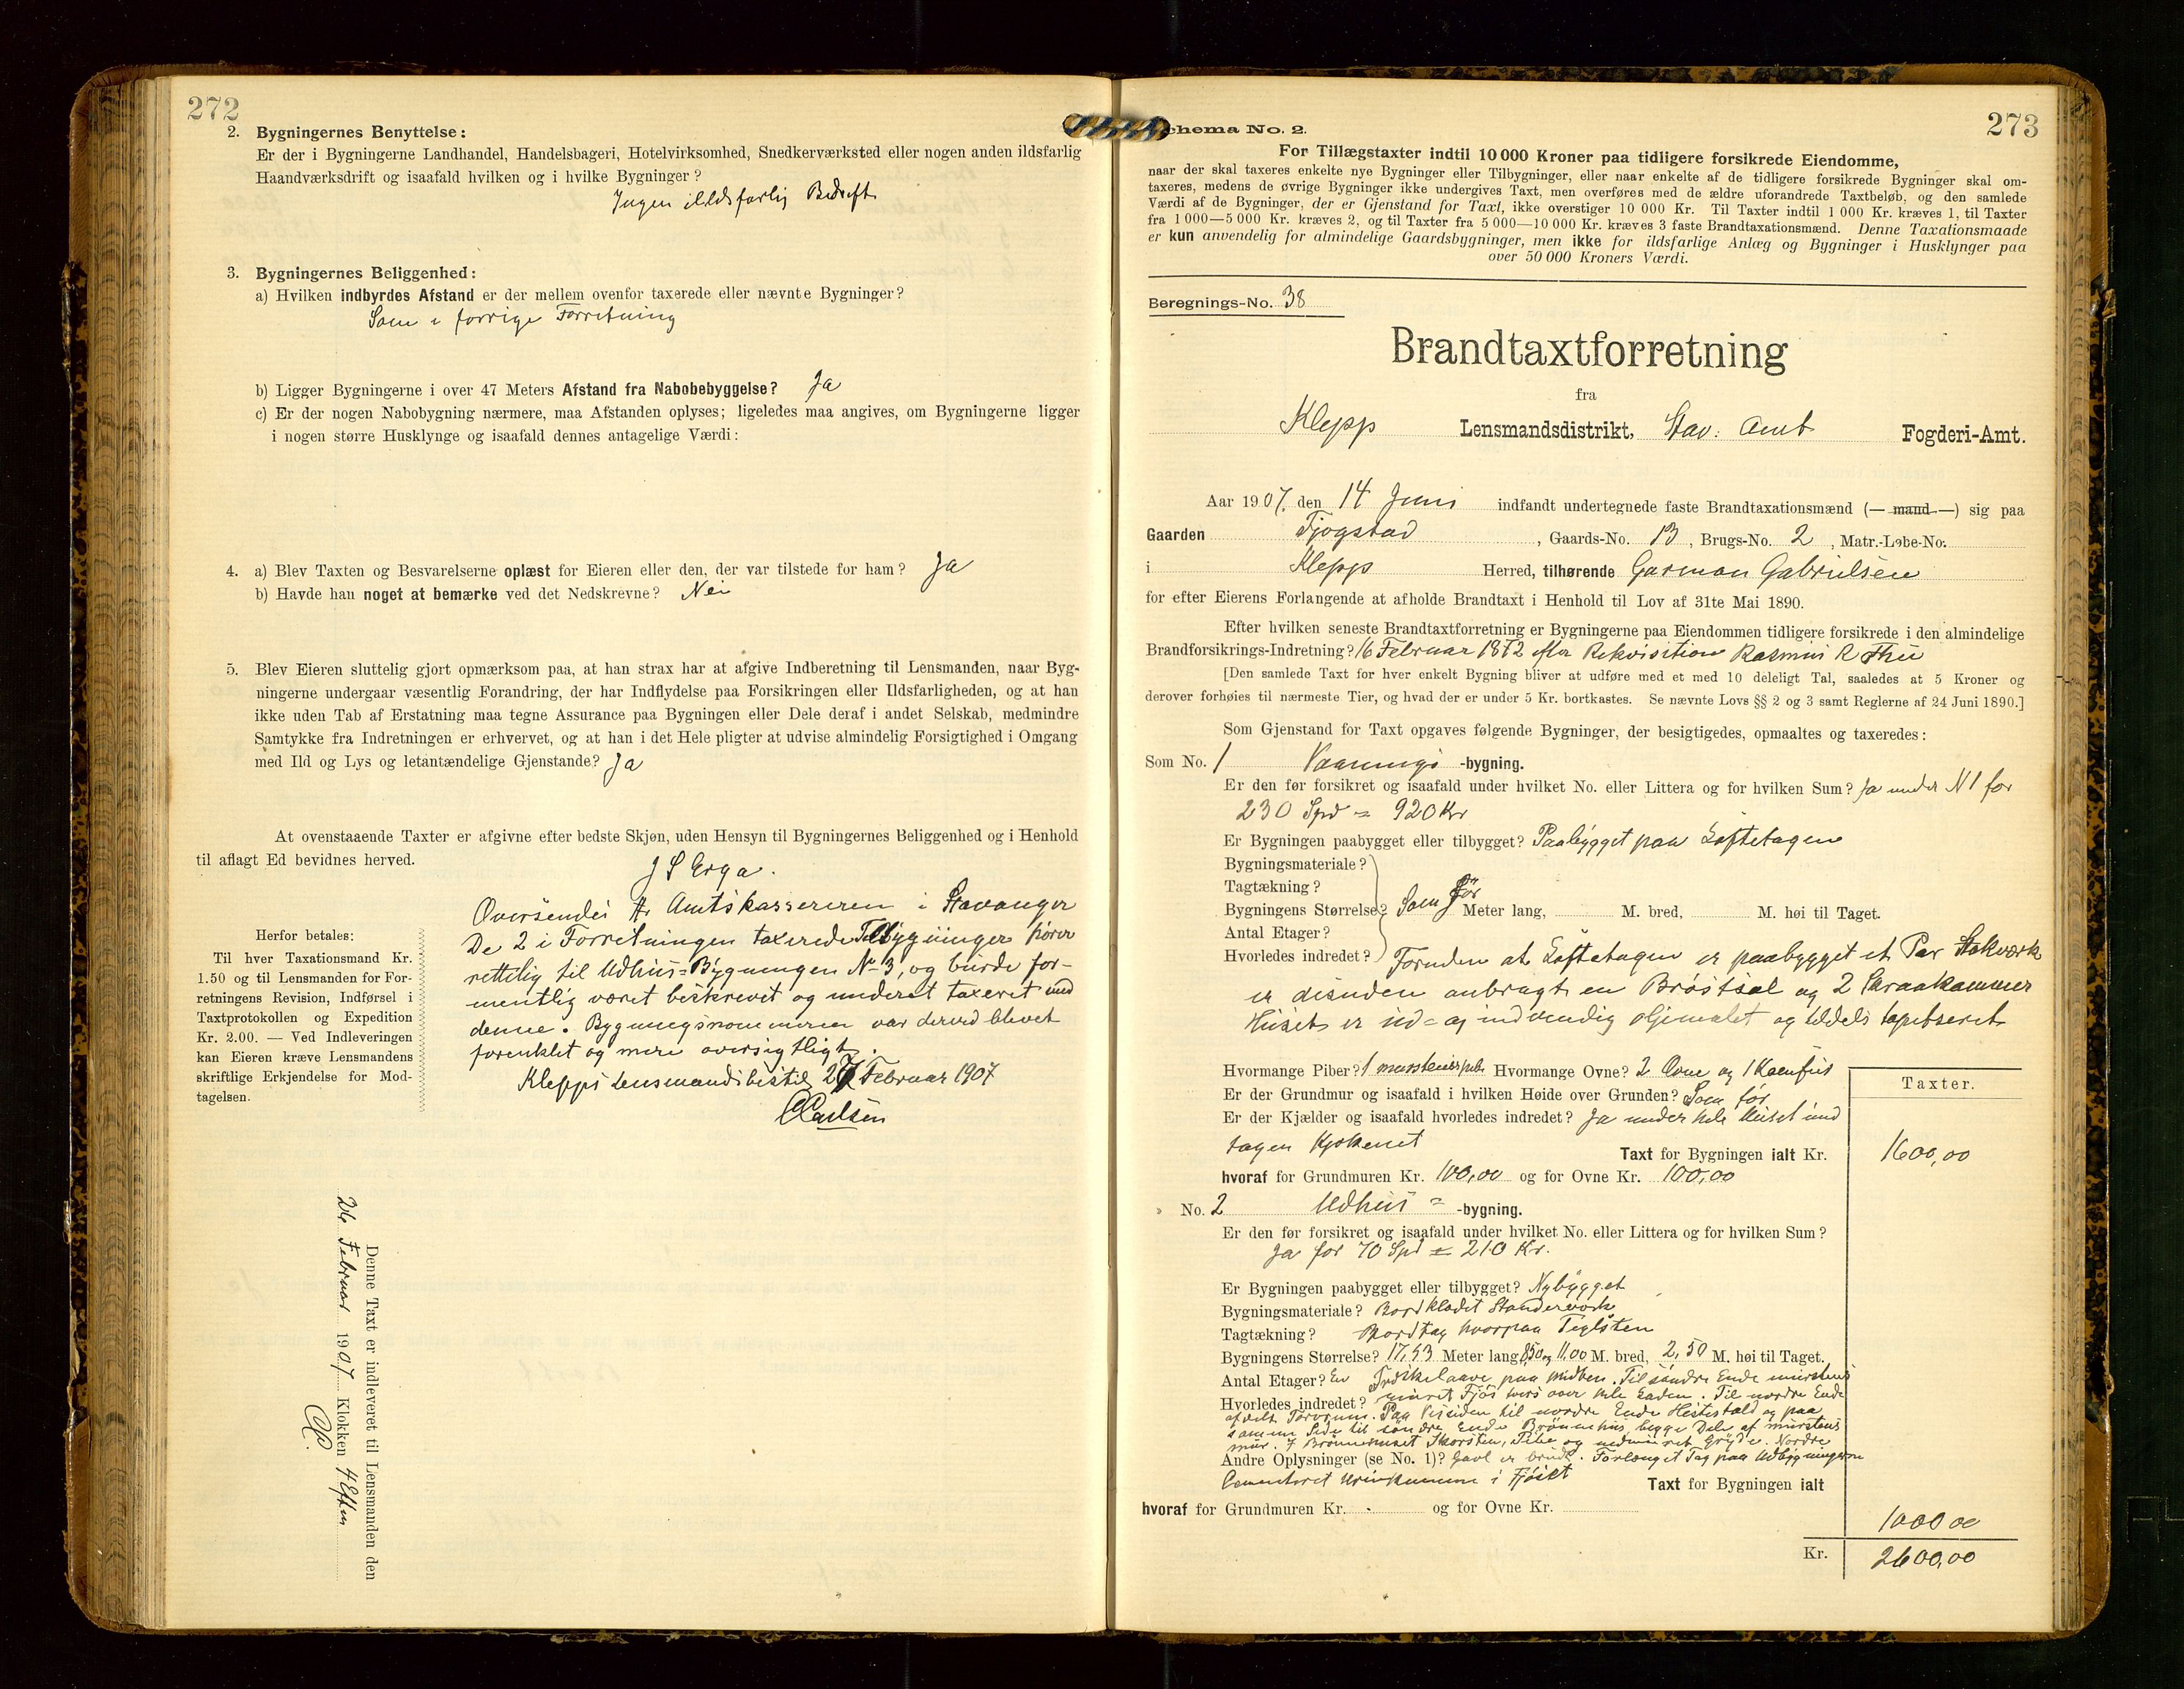 272
2. Bygningernes Benyttelse:
Er der i Bygningerne Landhandel, Handelsbageri, Hotelvirksomhed, Snedkerværksted eller nogen anden ildsfarlig
Haandværksdrift og isaafald hvilken og i hvilke Bygninger?
Ingen ildsfarlig Bedrift
3. Bygningernes Beliggenhed:
a) Hvilken indbyrdes Afstand er der mellem ovenfor taxerede eller nævnte Bygninger?
Som i forrige Forretning
b) Ligger Bygningerne i over 47 Meters Afstand fra Nabobebyggelse? Ja
c) Er der nogen Nabobygning nærmere, maa Afstanden oplyses; ligeledes maa angives, om Bygningerne ligger
i nogen større Husklynge og isaafald dennes antagelige Værdi:
4. a) Blev Taxten og Besvarelserne oplæst for Eieren eller den, der var tilstede for ham? Ja
b) Havde han noget at bemærke ved det Nedskrevne? Nei
5. Blev Eieren sluttelig gjort opmærksom paa, at han strax har at afgive Indberetning til Lensmanden, naar Byg-
ningerne undergaar væsentlig Forandring, der har Indflydelse paa Forsikringen eller Ildsfarligheden, og at han
ikke uden Tab af Erstatning maa tegne Assurance paa Bygningen eller Dele deraf i andet Selskab, medmindre
Samtykke fra Indretningen er erhvervet, og at han i det Hele pligter at udvise almindelig Forsigtighed i Omgang
med Ild og Lys og letantændelige Gjenstande? Ja
At ovenstaaende Taxter er afgivne efter bedste Skjøn, uden Hensyn til Bygningernes Beliggenhed og i Henhold
til aflagt Ed bevidnes herved.
J S Erga.
Oversendes Hr Amtskassereren i Stavanger
De 2 i Forretningen taxerede Tilbygninger hører
rettelig til Udhus=Bygningen No 3, og burde for-
mentlig været beskrevet og underet taxeret med
denne. Bygningsnommeren var derved blevet
forenklet og mere oversigtligt.
Klepps Lensmandsbestil 27 Februar 1907
Carlsen
Herfor betales:
Til hver Taxationsmand Kr.
1.50 og til Lensmanden for For-
retningens Revision, Indførsel i
Taxtprotokollen og Expedition
Kr. 2.00. — Ved Indleveringen
kan Eieren kræve Lensmandens
skriftlige Erkjendelse for Mod-
tagelsen.
Denne Taxt er indleveret til Lensmanden den
26 Februar 1907 Klokken 4 Efter
273
chema No. 2.
For Tillægstaxter indtil 10 000 Kroner paa tidligere forsikrede Eiendomme,
naar der skal taxeres enkelte nye Bygninger eller Tilbygninger, eller naar enkelte af de tidligere forsikrede Bygninger skal om-
taxeres, medens de øvrige Bygninger ikke undergives Taxt, men overføres med de ældre uforandrede Taxtbeløb, og den samlede
Værdi af de Bygninger, der er Gjenstand for Taxt, ikke overstiger 10 000 Kr. Til Taxter indtil 1 000 Kr. kræves 1, til Taxter
fra 1 000—5 000 Kr. kræves 2, og til Taxter fra 5 000—10 000 Kr. kræves 3 faste Brandtaxationsmænd. Denne Taxationsmaade
er kun anvendelig for almindelige Gaardsbygninger, men ikke for ildsfarlige Anlæg og Bygninger i Husklynger paa
over 50 000 Kroners Værdi.
Beregnings-No. 38
Brandtaxtforretning
fra
Klepp Lensmandsdistrikt, Stav: Amt Fogderi-Amt.
Aar 1907, den 14 Juni indfandt undertegnede faste Brandtaxationsmænd (— mand —) sig paa
Gaarden Tjøgstad, Gaards-No. 13, Brugs-No. 2, Matr.-Løbe-No.
i Klepp Herred, tilhørende Garman Gabrielsen
for efter Eierens Forlangende at afholde Brandtaxt i Henhold til Lov af 31te Mai 1890.
Efter hvilken seneste Brandtaxtforretning er Bygningerne paa Eiendommen tidligere forsikrede i den almindelige
Brandforsikrings-Indretning? 16 Februar 1872 efter Rekvisition Rasmus R Thu
[Den samlede Taxt for hver enkelt Bygning bliver at udføre med et med 10 deleligt Tal, saaledes at 5 Kroner og
derover forhøies til nærmeste Tier, og hvad der er under 5 Kr. bortkastes. Se nævnte Lovs §§ 2 og 3 samt Reglerne af 24 Juni 1890.]
Som Gjenstand for Taxt opgaves følgende Bygninger, der besigtigedes, opmaaltes og taxeredes:
Som No. 1 Vaanings -bygning.
Er den før forsikret og isaafald under hvilket No. eller Littera og for hvilken Sum? Ja under N 1 for
230 Spd = 920 Kr
Er Bygningen paabygget eller tilbygget? Paabygget paa Loftetagen
Bygningsmateriale?
Tagtækning?
Bygningens Størrelse? Som før Meter lang, M. bred, M. høi til Taget.
Antal Etager?
Hvorledes indredet? Foruden at Loftetagen er paabygget et Par Stokværk
er desuden anbragt en Brøstsal og 2 Skraakammer
Huset er ud= og indvendig oljemalet og tildels tapetseret
Hvormange Piber? 1 murstenspibe Hvormange Ovne? 2 Ovne og 1 Komfur
Er der Grundmur og isaafald i hvilken Høide over Grunden? Som før
Er der Kjælder og isaafald hvorledes indredet? Ja under hele Huset und
tagen Kjøkenet
Taxter.
Taxt for Bygningen ialt Kr. 1600,00
hvoraf for Grundmuren Kr. 100,00 og for Ovne Kr. 100,00
» No. 2 Udhus= -bygning.
Er den før forsikret og isaafald under hvilket No. eller Littera og for hvilken Sum?
Ja for 70 Spd = 210 Kr.
Er Bygningen paabygget eller tilbygget? Nybygget
Bygningsmateriale? Bordklædt Standerværk
Tagtækning? Bordtag hvorpaa Teglsten
Bygningens Størrelse? 17,53 Meter lang, 8,50 og 11,00 M. bred, 2,50 M. høi til Taget.
Antal Etager? En Træskelaave paa Midten. Til søndre Ende murstens
Hvorledes indredet? muret Fjøs tvers over hele Laden. Til nordre Ende
afdelt Torvrum. Paa Vestsiden til nordre Ende Hestestald og paa
samme Side til søndre Ende Brønnehus, begge Dele af murstens
mur. I Brønnehuset Skorsten, Pibe og nedmuret Gryde. Nordre
Andre Oplysninger (se No. 1)? Gavl er brudt. Forlænget Tag paa Udbygningerne
Cementeret Urinkumme i Fjøset
Taxt for Bygningen ialt 1000 00
hvoraf for Grundmuren Kr. - og for Ovne Kr.
Kr. 2600,00